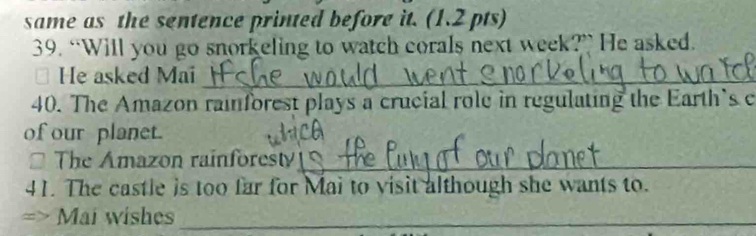 same as the sentence printed before it. (1.2 pts)
39. “Will you go snorkeling to watch corals next week?” He asked.
□ He asked Mai if she would went snorkeling to watch
40. The Amazon rainforest plays a crucial role in regulating the Earth's c
of our planet. which
□ The Amazon rainforest is the lung of our planet
41. The castle is too far for Mai to visit although she wants to.
=> Mai wishes